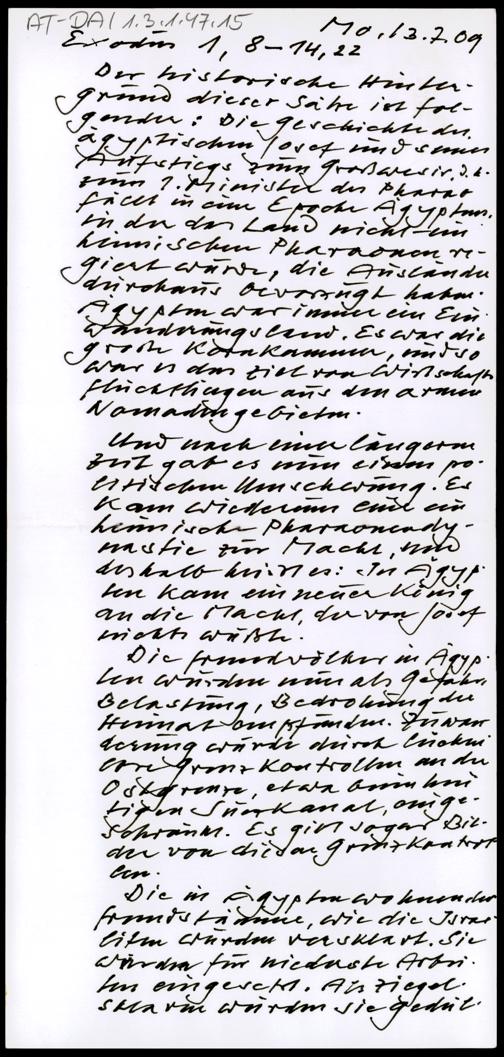 AT-DA/1.3.1.47.15
Mo. 13.7.09
Exodus 1, 8–14, 22
Der historische Hinter-
grund dieser Sätze ist fol-
gender: Die Geschichte des
ägyptischen Josef und seines
Aufstiegs zum Großwesir, d.h.
zum 1. Minister des Pharao
fällt in eine Epoche Ägyptens,
in der das Land nicht von
heimischen Pharaonen re-
giert wurde, die Ausländer
durchaus bevorzugt haben.
Ägypten war immer ein Ein-
wanderungsland. Es war die
große Kornkammer, und so
war es das Ziel von Wirtschafts
flüchtlingen aus den armen
Nomadengebieten.
Und nach einer längeren
Zeit gab es nun einen po-
litischen Umschwung. Es
kam wiederum eine ein
heimische Pharaonendy-
nastie zur Macht, und
deshalb heißt es: In Ägyp-
ten kam ein neuer König
an die Macht, der von Josef
nichts wußte.
Die Fremdvölker in Ägyp-
ten wurden nun als Gefahr
Belastung, Bedrohung der
Heimat empfunden. Zuwan
derung wurde durch
Grenzkontrollen an der
Ostgrenze, etwa beim heu
tigen Suezkanal, einge-
schränkt. Es gibt sogar Bil-
der von diesen Grenzkontrol
len.
Die in Ägypten wohnenden
Fremdstämme, wie die Isra-
eliten wurden versklavt. Sie
wurden für niederste Arbei-
ten eingesetzt. Als Ziegel-
sklaven wurden sie